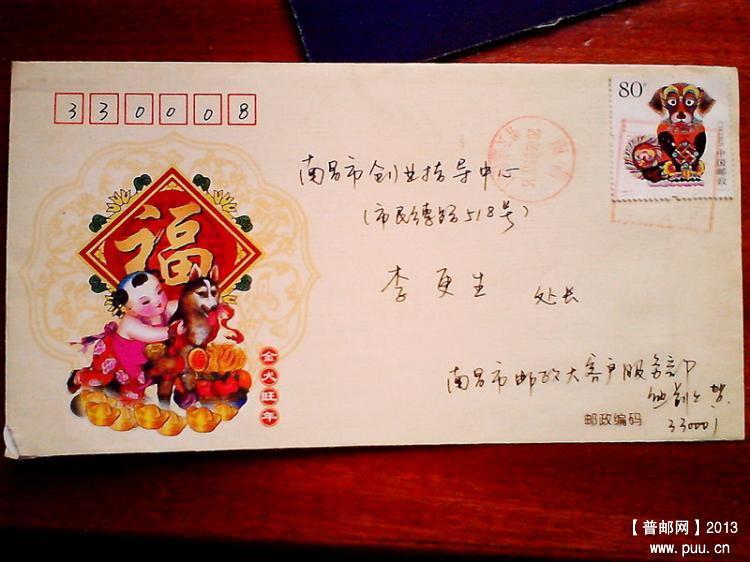 330008
80分
中国邮政
CHINA
南昌市创业指导中心
(市民德路518号)
李更生 处长
福
金犬旺年
南昌市邮政大客户服务部
邮政编码
330001
【普邮网】2013
www.puu.cn